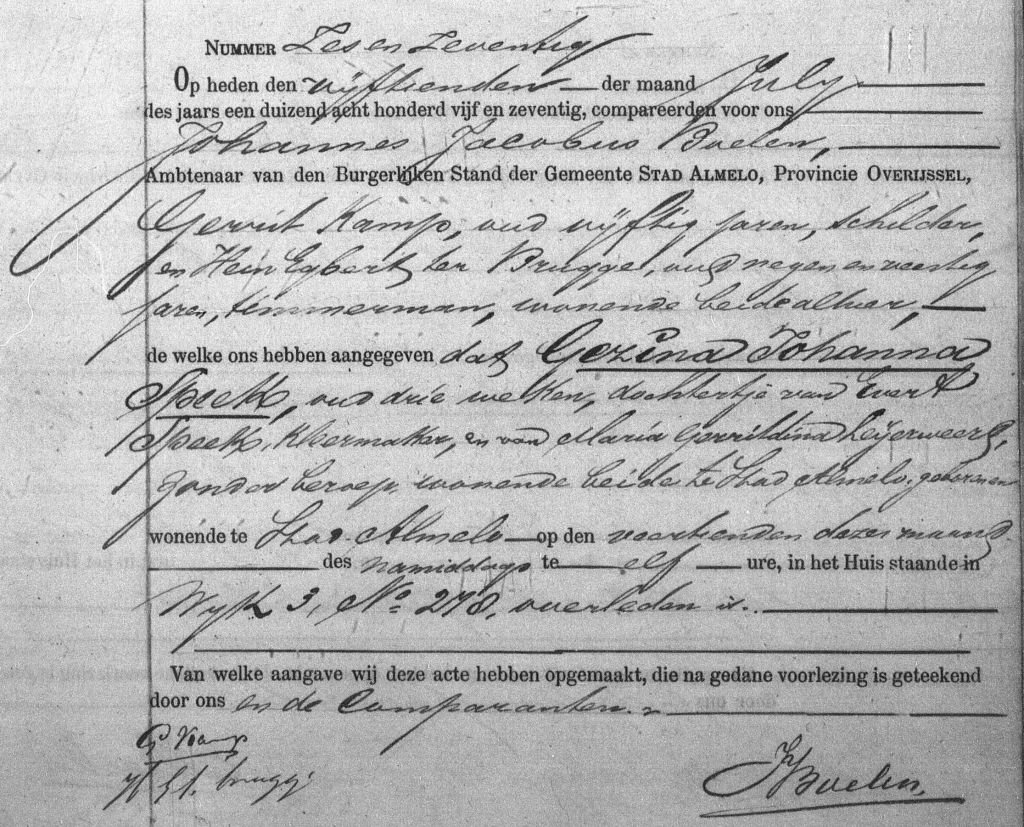 NUMMER Zes en Zeventig
Op heden den vijftienden der maand July
des jaars een duizend acht honderd vijf en zeventig, compareerden voor ons
Johannes Jacobus Boelen,
Ambtenaar van den Burgerlijken Stand der Gemeente STAD ALMELO, Provincie OVERIJSSEL,
Gerrit Kamp, oud vijftig jaren, schilder,
en Hein Egbert ter Brugge, oud negen en veertig
jaren, timmerman, wonende beide alhier,
de welke ons hebben aangegeven dat Gezina Johanna
Speek, oud drie weken, dochtertje van Evert
Speek, kleermaker, en van Maria Gerridina
zonder beroep, wonende beide te Stad Almelo, geboren en
wonende te Stad Almelo op den veertienden dezer maand
des namiddags te elf ure, in het Huis staande in
Wijk 3, No. 278, overleden is.
Van welke aangave wij deze acte hebben opgemaakt, die na gedane voorlezing is geteekend
door ons en de Comparanten.
G Kamp
H E t. brugge
JJBoelen